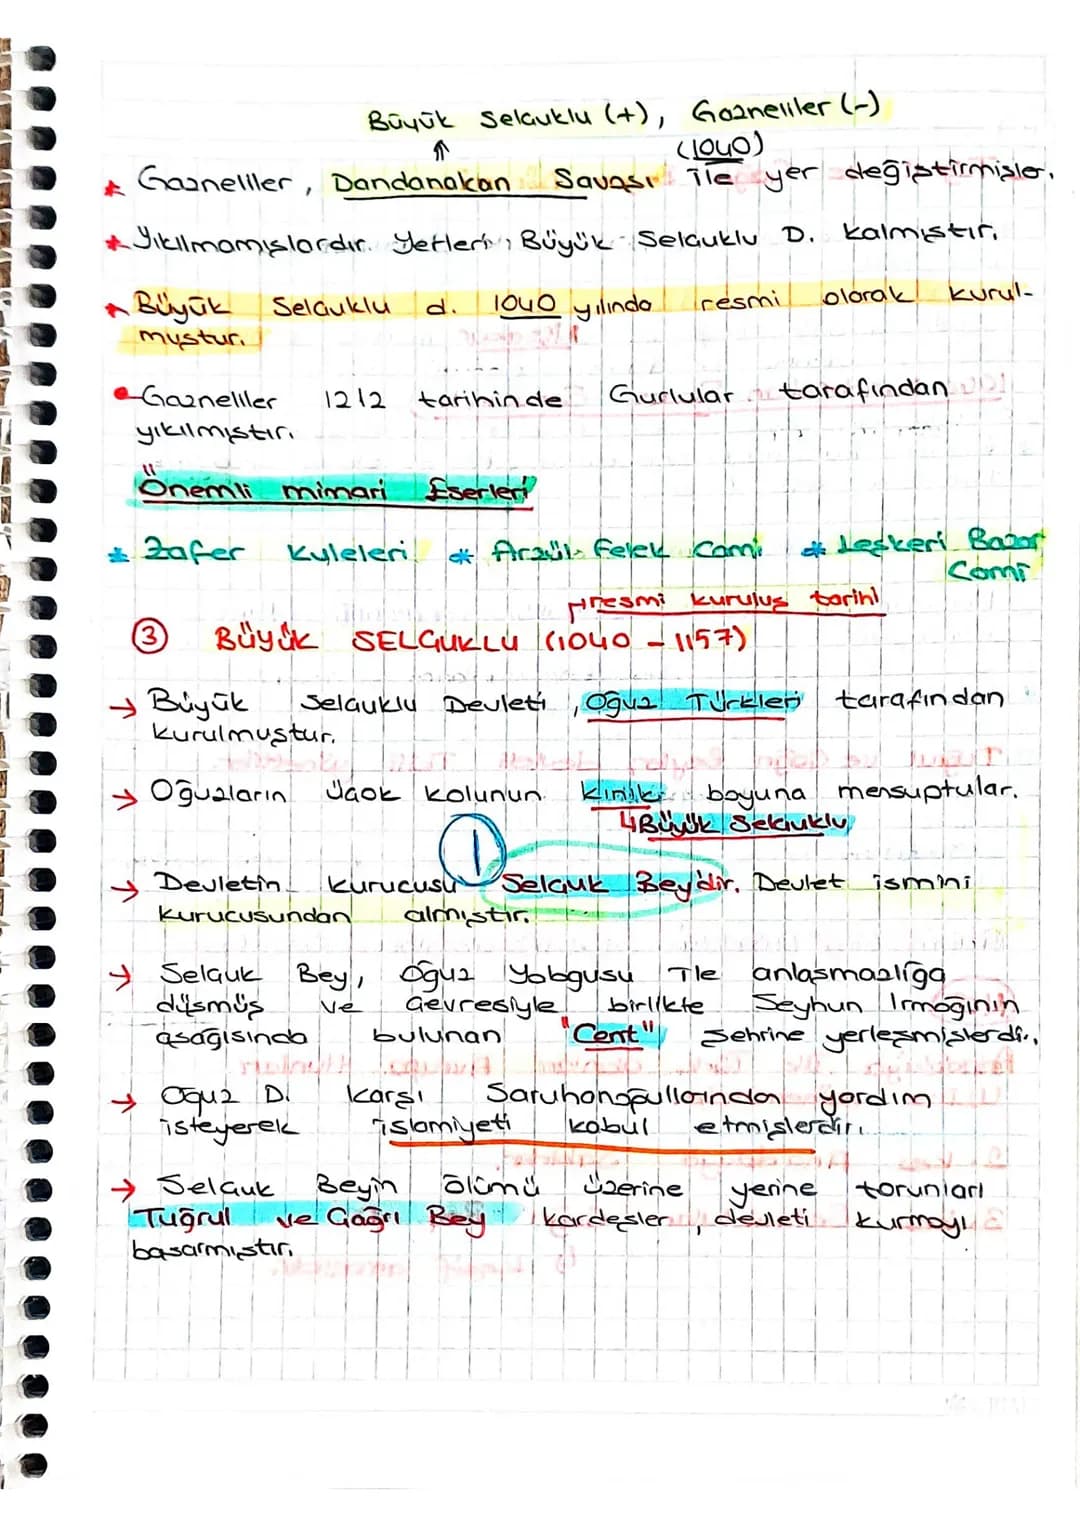 Büyük Selçuklu (+), Gazneliler (-)
(1040)
Gazneliler, Dandanakan Savaşı ile yer değiştirmişler.
Yıkılmamışlardır. Yerleri, Büyük Selçuklu D. kalmıştır.
Büyük Selçuklu d. 1040 yılında resmi olarak kurul-
muştur.
Gazneliler 1212 tarihinde Gurlular tarafından
yıkılmıştır.
Önemli mimari Eserleri
* Zafer Kuleleri * Arzül-Felek Cami * Leşkeri Bazar
Cami
resmi kuruluş tarihi
③ BÜYÜK SELÇUKLU (1040 - 1157)
→ Büyük Selçuklu Devleti, Oğuz Türkleri tarafından
kurulmuştur.
→ Oğuzların Üçok kolunun Kınık boyuna mensuptular.
↳Büyük Selçuklu
1
→ Devletin kurucusu Selçuk Bey'dir. Devlet ismini
kurucusundan almıştır.
→ Selçuk Bey, Oğuz Yabgusu ile anlaşmazlığa
düşmüş ve çevresiyle birlikte Seyhun Irmağının
aşağısında bulunan "Cent" şehrine yerleşmişlerdir.
→ Oğuz D. karşı Saruhanoğullarından yardım
isteyerek islamiyeti kabul etmişlerdir.
→ Selçuk Beyin ölümü üzerine yerine torunları
Tuğrul ve Çağrı Bey kardeşler, devleti kurmayı
başarmıştır.